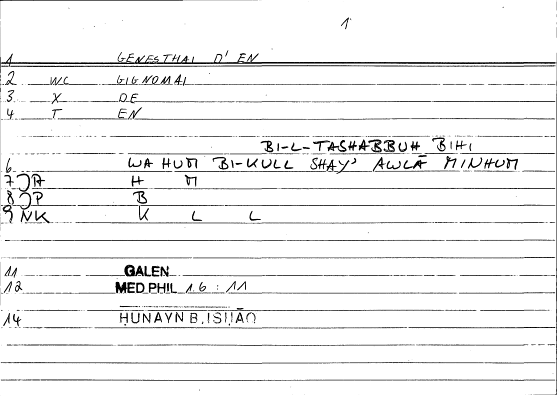 1
1 GENESTHAI D' EN
2 WC GIGNOMAI
3 X DE
4 T EN
BI-L-TASHABBUH BIHI
6 WA HUM BI-KULL SHAY' AWLĀ MINHUM
7 A H M
8 P B
9 NK K L L
11 GALEN
12 MED.PHIL 16 : 11
14 ḤUNAYN B. ISḤĀQ